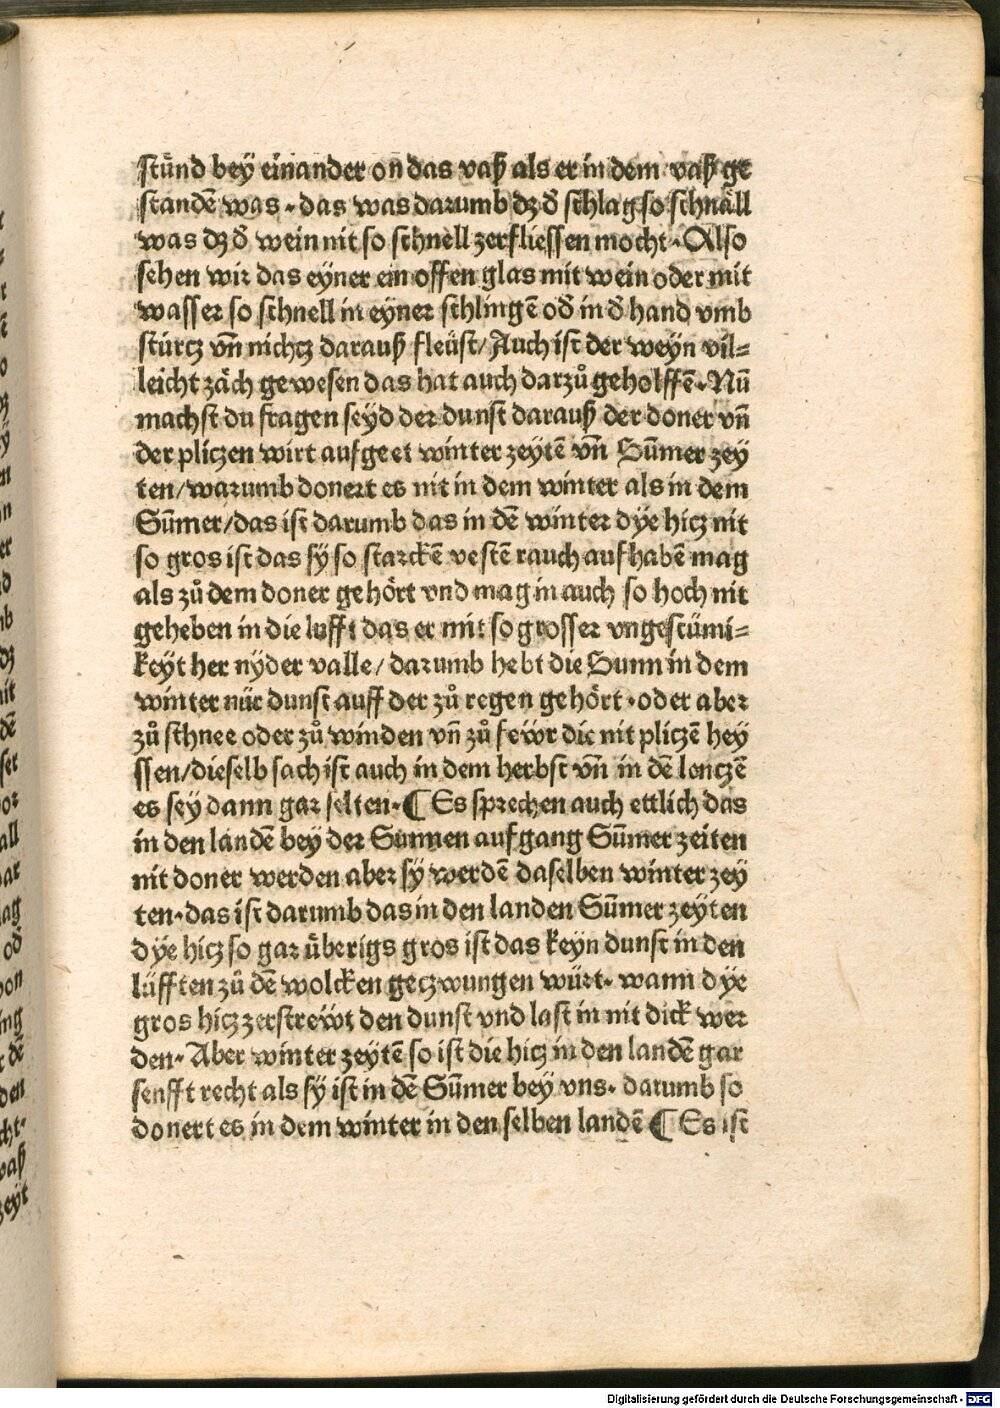 stůnd bey einander on das vaß als er in dem vaß ge
standē was · das was darumb dz d̄ schlag so schnåll
was dz d̄ wein nit so schnell zerfliessen mocht · Also
sehen wir das eyner ein offen glas mit wein oder mit
wasser so schnell in eyner schlingē od̄ in d̄ hand vmb
stürtz vn̄ nichtz darauß fleüst/Auch ist der weyn vil=
leicht zåch gewesen das hat auch darzů geholffē · Nū
machst du fragen seyd der dunst darauß der doner vn̄
der pliczen wirt auf geet winter zeytē vn̄ Sūmer zey
ten/warumb donert es nit in dem winter als in dem
Sūmer/das ist darumb das in dē winter dÿe hicz nit
so gros ist das sÿ so starckē vestē rauch auf habē mag
als zů dem doner gehört vnd mag in auch so hoch nit
geheben in die lufft das er mit so grosser vngestümi=
keÿt her nÿder valle/darumb hebt die Sunn in dem
winter nür dunst auff der zů regen gehört · oder aber
zů schnee oder zů winden vn̄ zů fewr die nit pliczē hey
ssen/dieselb sach ist auch in dem herbst vn̄ in dē lenczē
es sey dann gar selten · ¶ Es sprechen auch ettlich das
in den landē bey der Sunnen aufgang Sūmer zeiten
nit doner werden aber sÿ werdē daselben winter zey
ten · das ist darumb das in den landen Sūmer zeÿten
dÿe hicz so gar überigs gros ist das keyn dunst in den
lüfften zů dē wolcken geczwungen würt · wann dÿe
gros hicz zerstrewt den dunst vnd last in nit dick wer
den · Aber winter zeytē so ist die hicz in den landē gar
senfft recht als sÿ ist in dē Sūmer bey vns · darumb so
donert es in dem winter in den selben landē ¶ Es ist
Digitalisierung gefördert durch die Deutsche Forschungsgemeinschaft - DFG